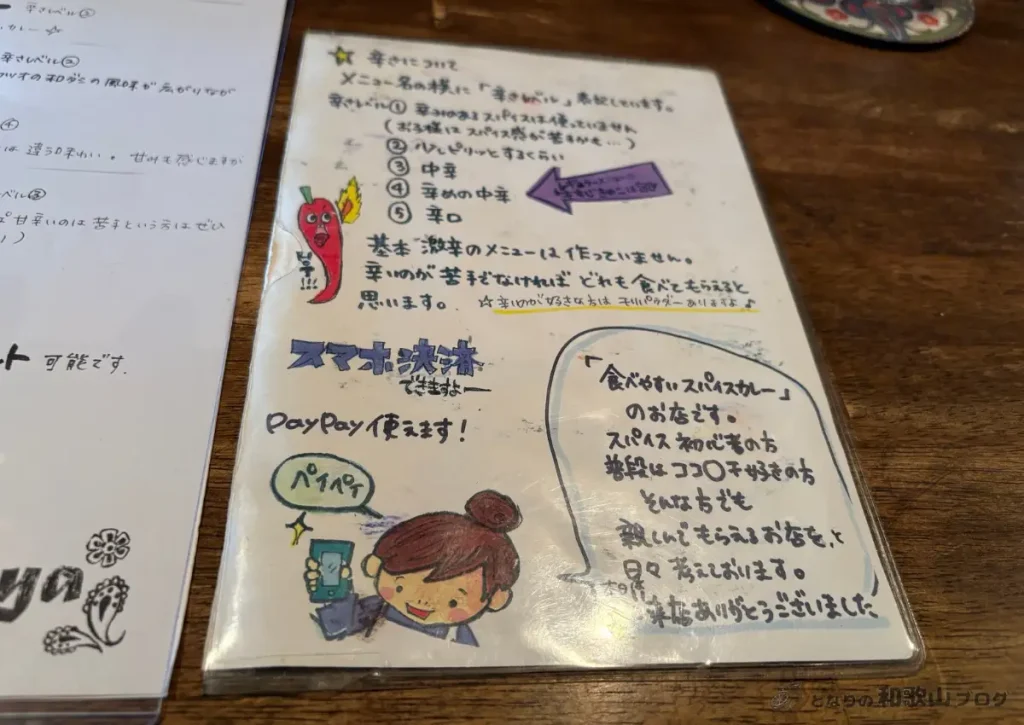 辛さレベル②
カレー☆
辛さレベル②
の和ダシの風味が広がりなが
④
は違う味わい。甘みも感じますか
ベル③
甘辛いのは苦手という方はぜひ
ト 可能です。
ya
☆ 辛さについて
メニュー名の横に「辛さレベル」表記しています。
辛さレベル① 辛みのあるスパイスは使っていません
(お子様にはスパイス感が苦手かも…)
② 少しピリッとするくらい
③ 中辛
④ 辛めの中辛
⑤ 辛口
基本 激辛のメニューは作っていません。
辛いのが苦手でなければ どれも食べてもらえると
思います。 ☆辛いのが好きな方は チリパウダーありますよ♪
スマホ決済
できますよー
PayPay使えます!
ペイペイ
「食べやすいスパイスカレー」
のお店です。
スパイス初心者の方
普段はココ〇チ好きの方
そんな方でも
親しんでもらえるお店を、と
日々考えております。
来店ありがとうございました
となりの和歌山ブログ